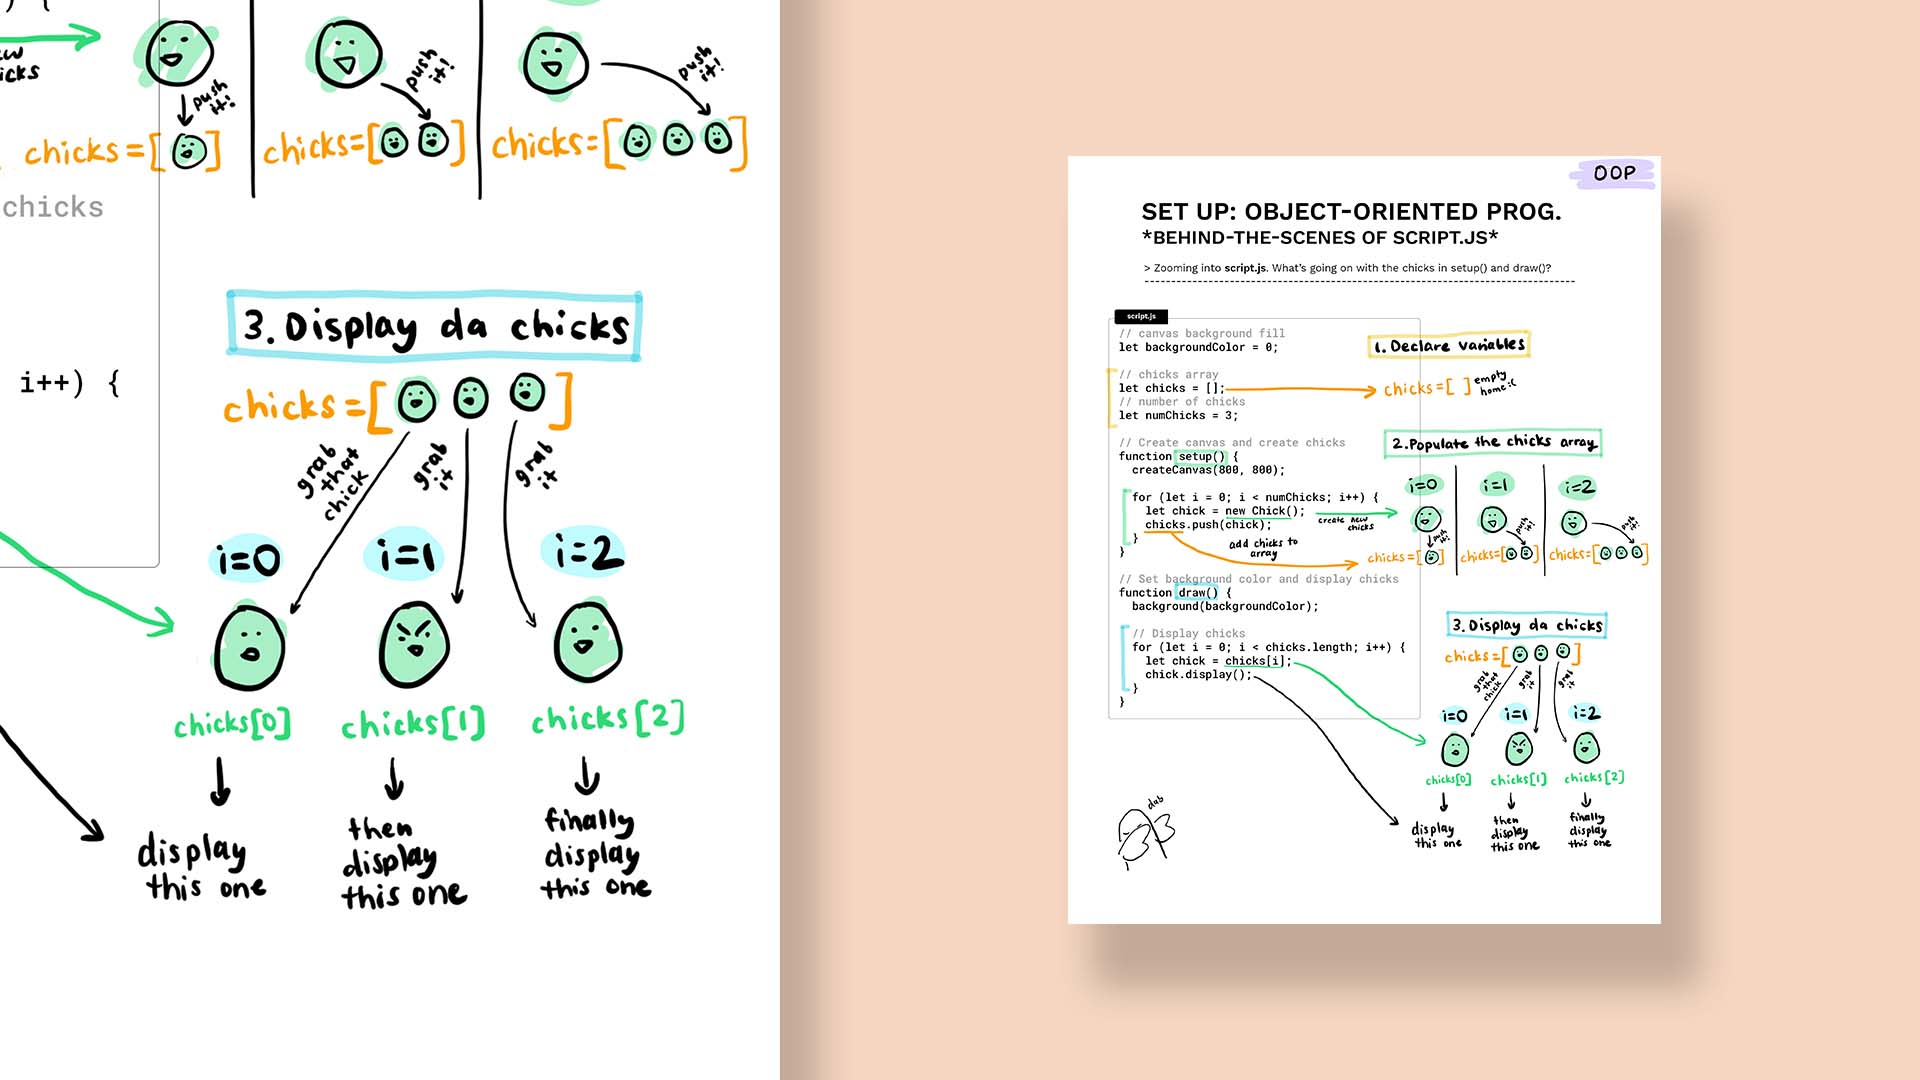 ) {
ew
icks
push
it!
push
it!
push
it!
chicks=[ ]
chicks=[ ]
chicks=[ ]
chicks
i++) {
3. Display da chicks
chicks=[ ]
grab
that
chick
grab
it
grab
it
i=0
i=1
i=2
chicks[0]
chicks[1]
chicks[2]
display
this one
then
display
this one
finally
display
this one
OOP
SET UP: OBJECT-ORIENTED PROG.
*BEHIND-THE-SCENES OF SCRIPT.JS*
> Zooming into script.js. What's going on with the chicks in setup() and draw()?
script.js
// canvas background fill
let backgroundColor = 0;
// chicks array
let chicks = [];
// number of chicks
let numChicks = 3;
// Create canvas and create chicks
function setup() {
createCanvas(800, 800);
for (let i = 0; i < numChicks; i++) {
let chick = new Chick();
chicks.push(chick);
}
}
// Set background color and display chicks
function draw() {
background(backgroundColor);
// Display chicks
for (let i = 0; i < chicks.length; i++) {
let chick = chicks[i];
chick.display();
}
}
1. Declare variables
chicks=[ ]
empty
home:(
2. Populate the chicks array
i=0
i=1
i=2
create new
chicks
push
it!
push
it!
push
it!
add chicks to
array
chicks=[ ]
chicks=[ ]
chicks=[ ]
3. Display da chicks
chicks=[ ]
grab
that
chick
grab
it
grab
it
i=0
i=1
i=2
chicks[0]
chicks[1]
chicks[2]
display
this one
then
display
this one
finally
display
this one
dab